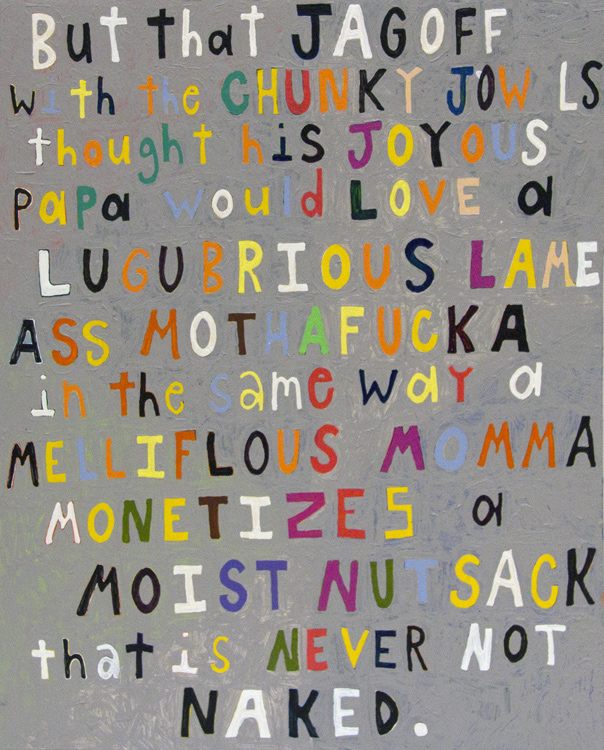 But that JAGOFF
with the CHUNKY JOWLS
thought his JOYOUS
papa would LOVE a
LUGUBRIOUS LAME
ASS MOTHAFUCKA
in the same way a
MELLIFLOUS MOMMA
MONETIZES a
MOIST NUTSACK
that is NEVER NOT
NAKED.